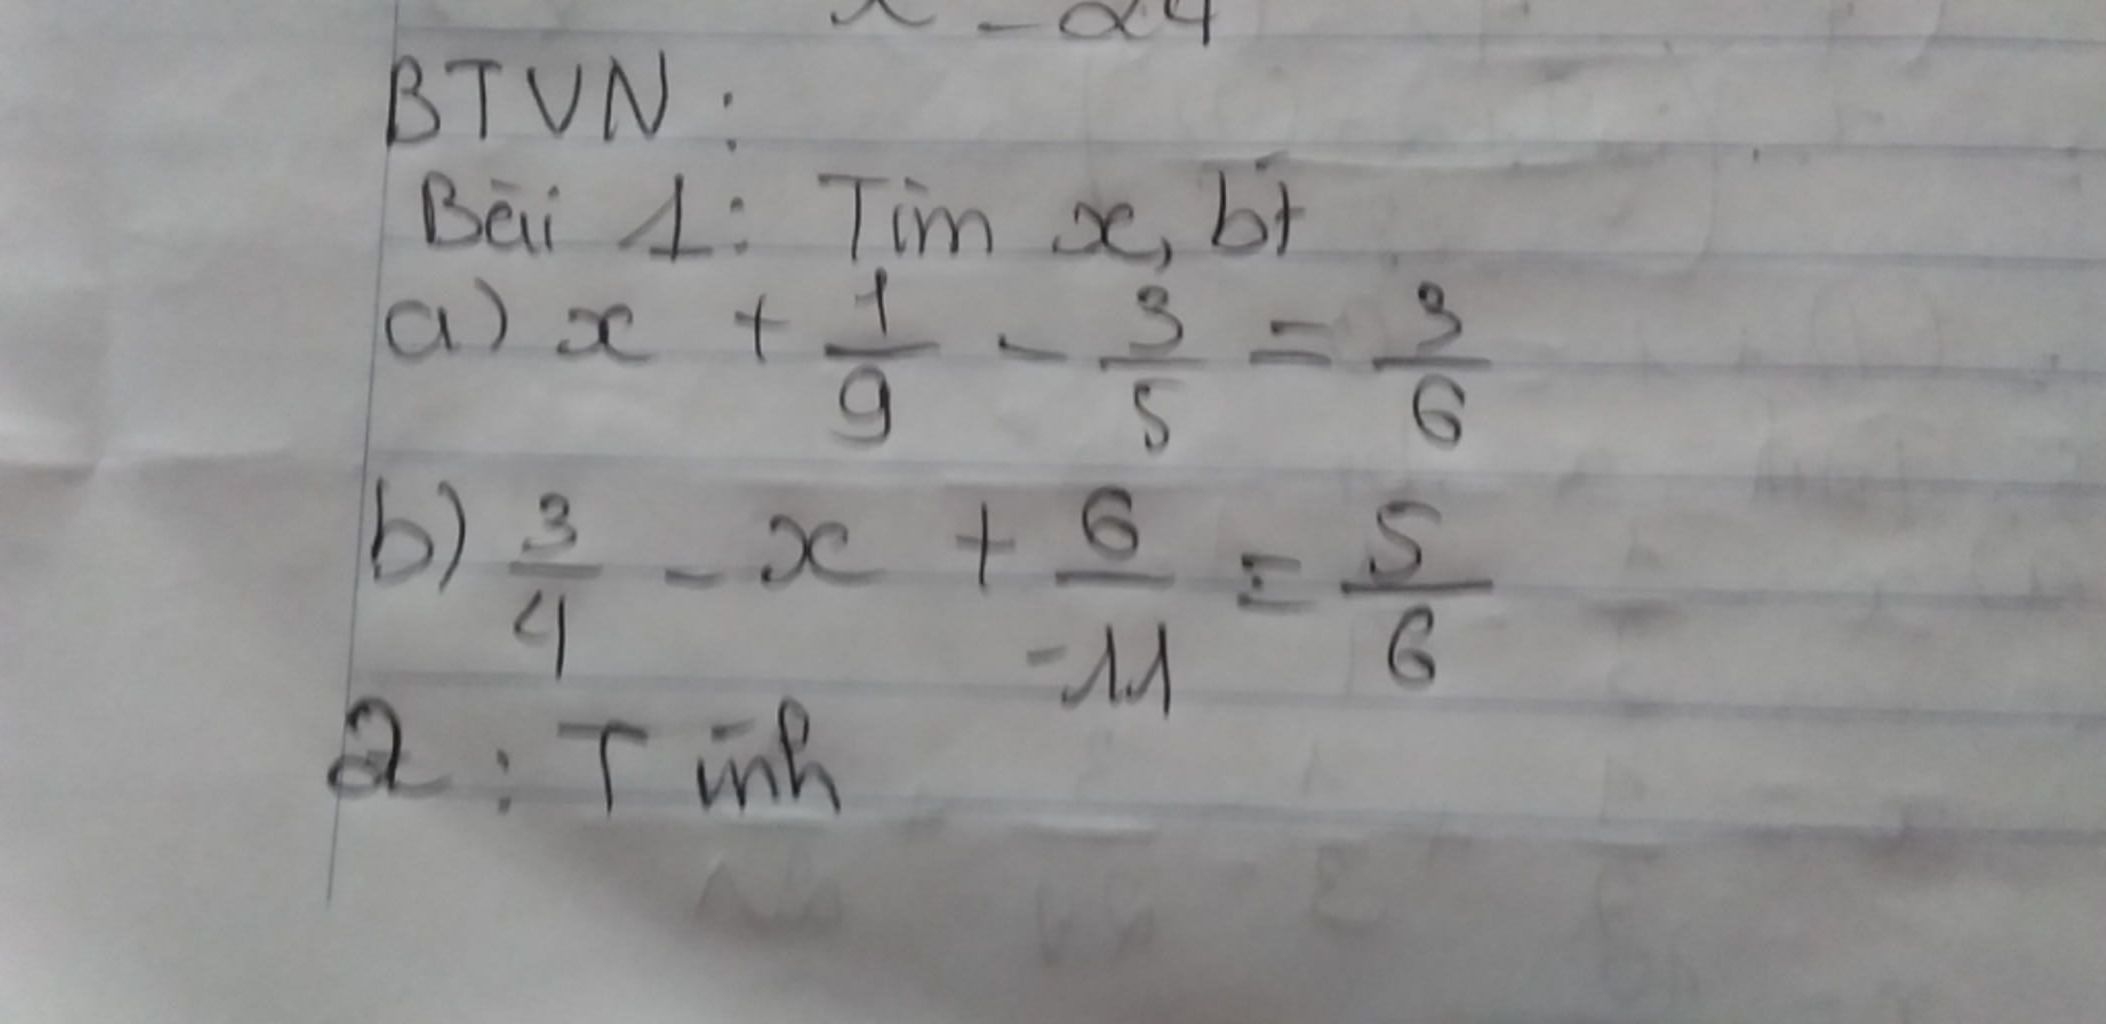 x = 24
BTVN:
Bài 1: Tìm x, bt
a) x + 1/9 - 3/5 = 3/6
b) 3/4 - x + 6/-11 = 5/6
2: Tính